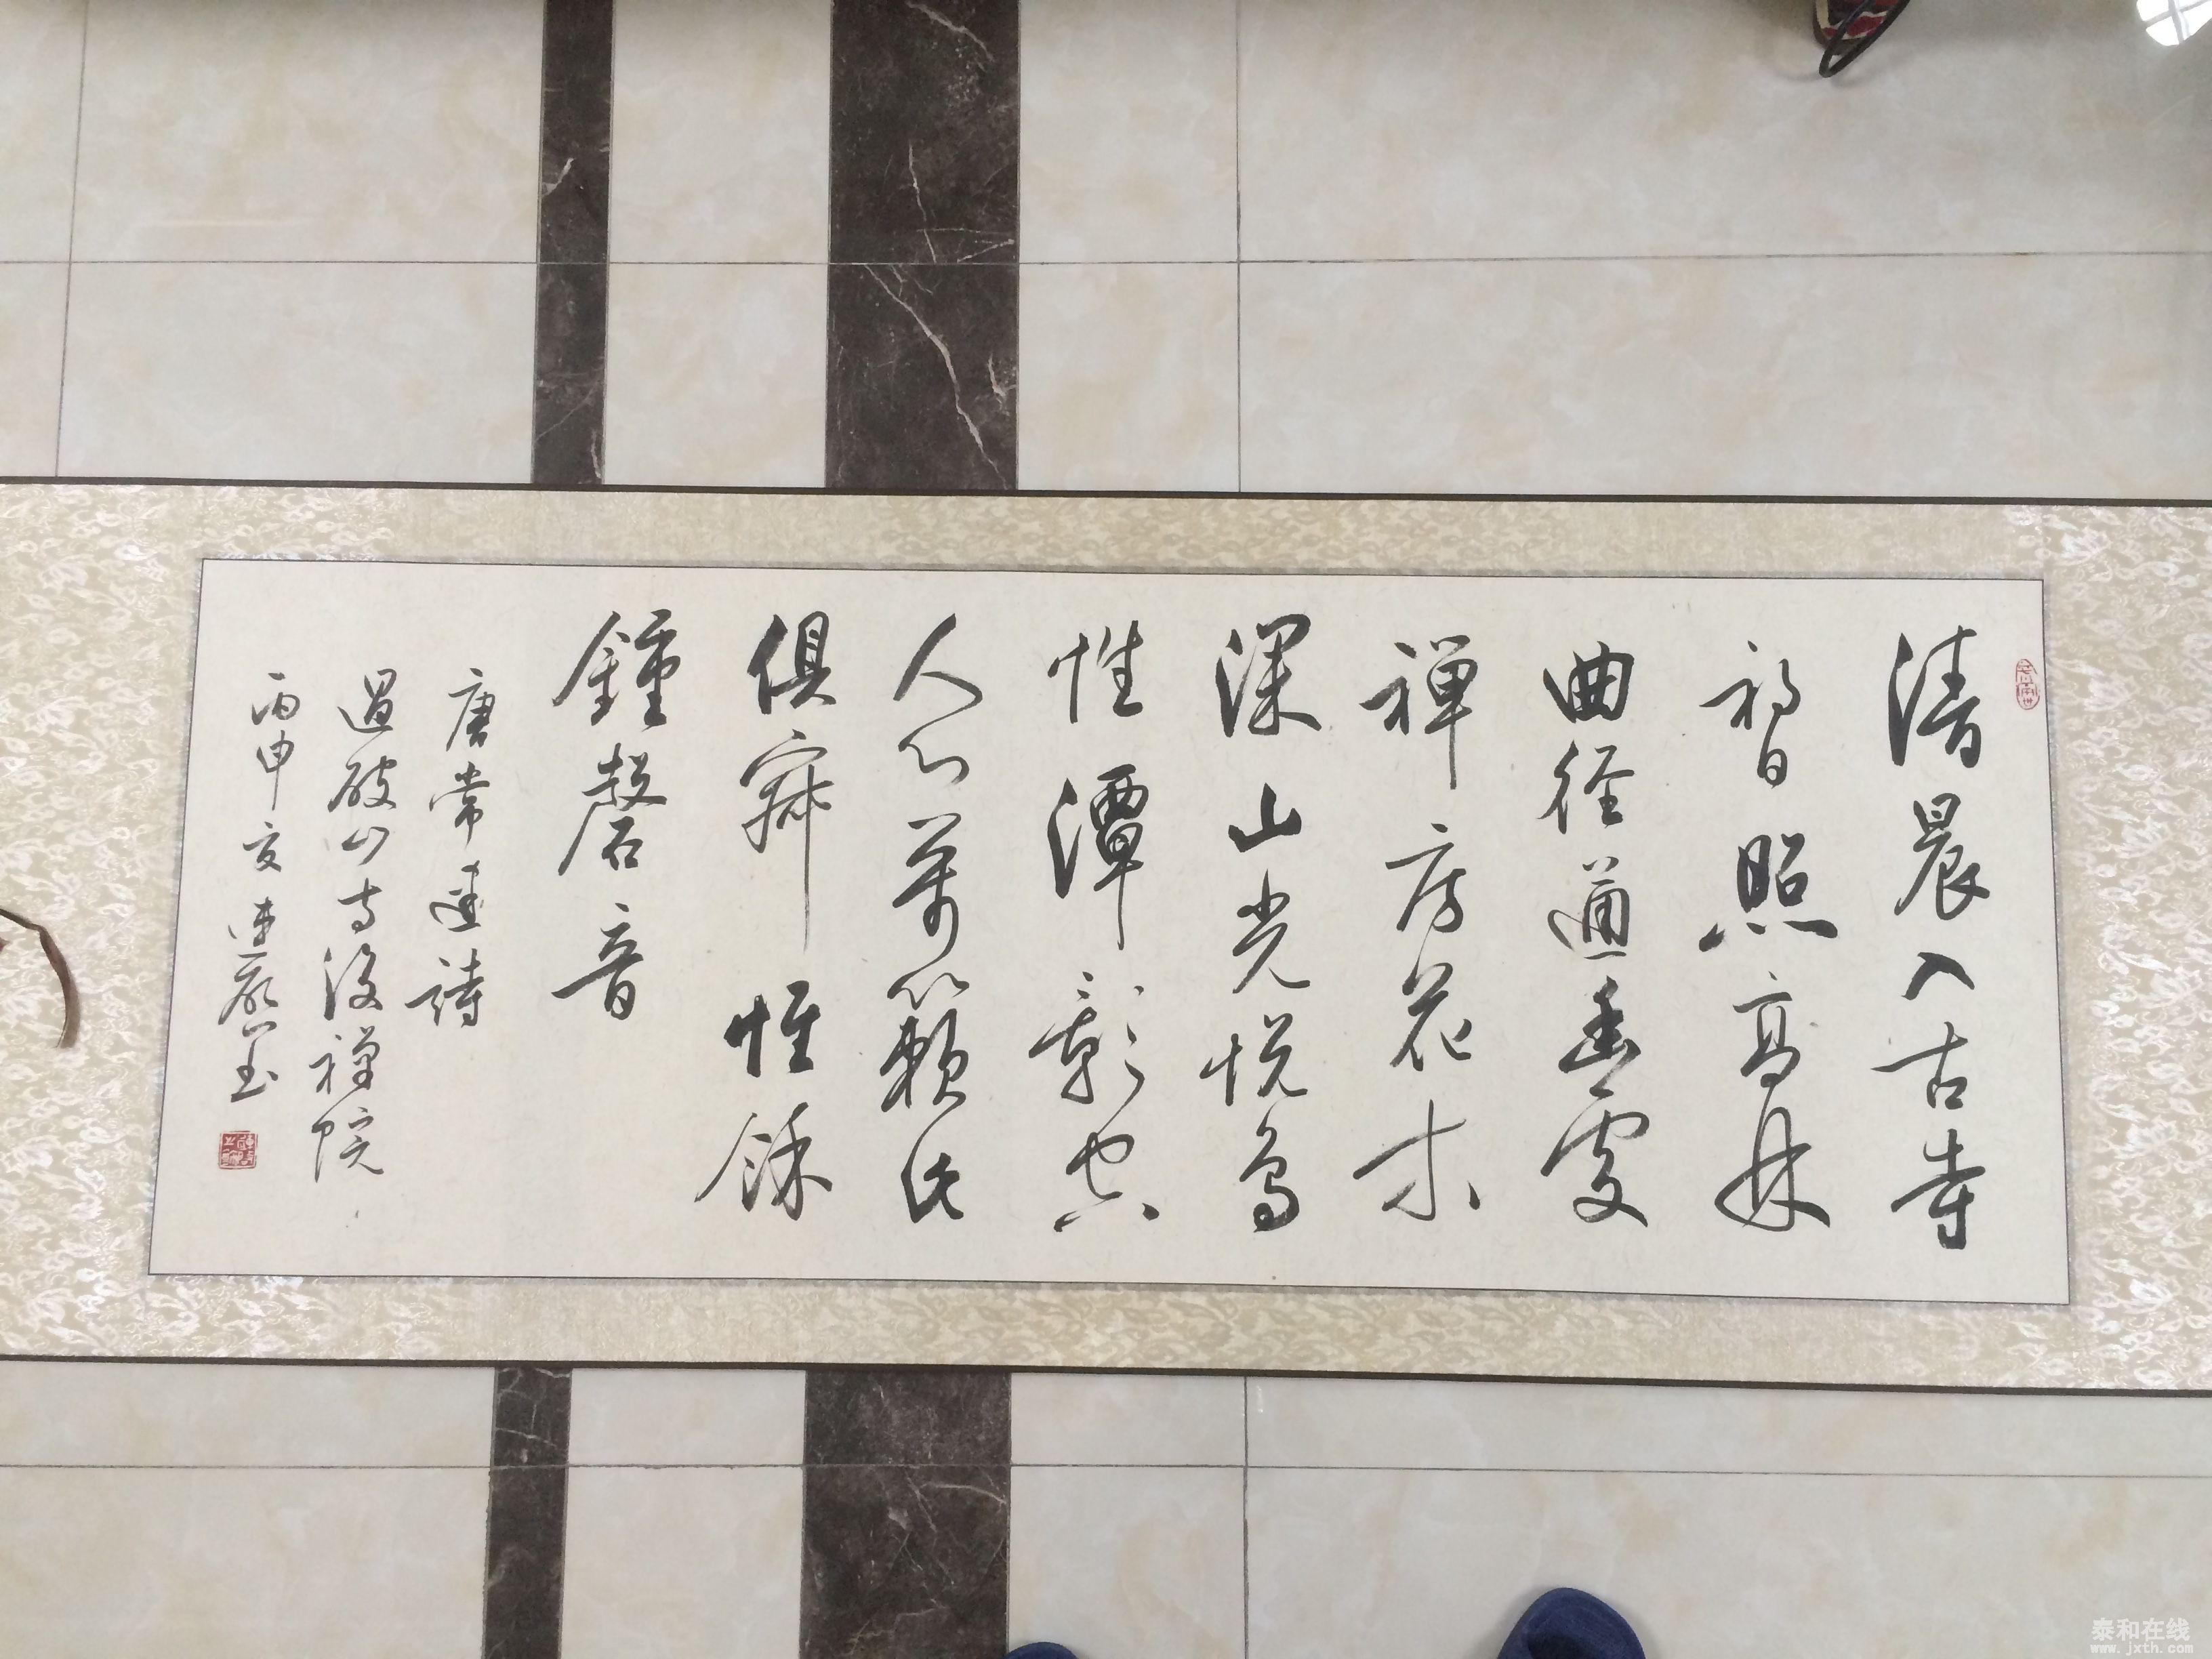 清晨入古寺
初日照高林
曲径通幽處
禅房花木
深山光悦鸟
性潭影空
人心萬籁此
俱寂惟餘
鍾磬音
唐常建詩
過破山寺後禅院
丙申夏连
书
泰和在线
www.jxth.com